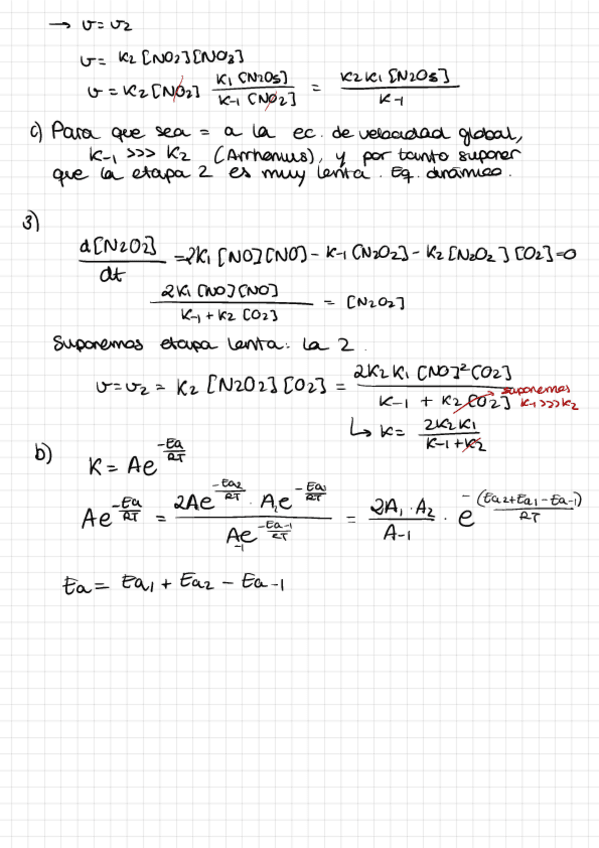 → v = v2
v = K2 [NO2][NO3]
v = K2 [NO2] K1 [N2O5] / K-1 [NO2] = K2 K1 [N2O5] / K-1
c) Para que sea = a la ec. de velocidad global,
K-1 >>> K2 (Arrhenius), y por tanto suponer
que la etapa 2 es muy lenta. Eq. dinámico.
3)
d[N2O2] / dt = 2K1 [NO][NO] - K-1 [N2O2] - K2 [N2O2][O2] = 0
2K1 [NO][NO] / K-1 + K2 [O2] = [N2O2]
Suponemos etapa lenta: la 2.
v = v2 = K2 [N2O2][O2] = 2K2 K1 [NO]² [O2] / K-1 + K2 [O2] suponemos K-1 >>> K2
↳ K = 2K2 K1 / K-1 + K2
b) K = Ae^(-Ea/RT)
Ae^(-Ea/RT) = 2Ae^(-Ea2/RT) · A1e^(-Ea1/RT) / A-1e^(-Ea-1/RT) = 2A1 · A2 / A-1 · e^(-(Ea2+Ea1-Ea-1)/RT)
Ea = Ea1 + Ea2 - Ea-1